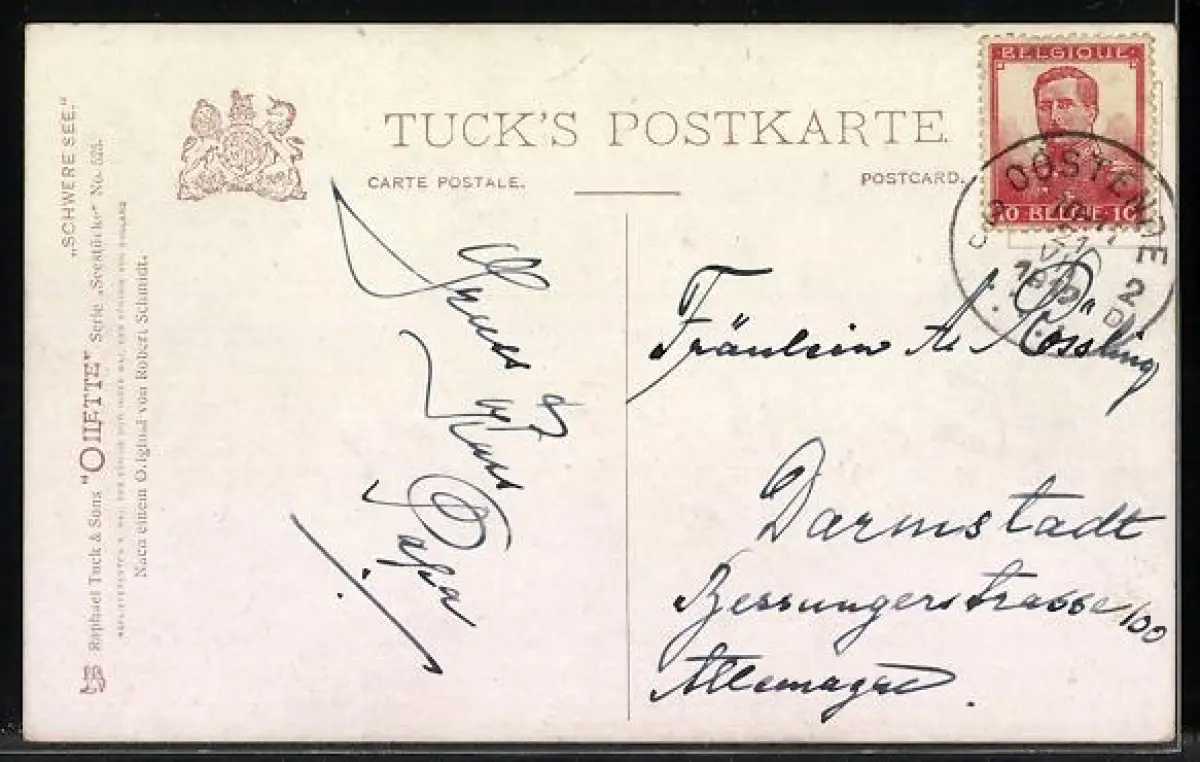 TUCK'S POSTKARTE.
CARTE POSTALE.
POSTCARD.
BELGIQUE
10 BELGIË 10
OOSTENDE 2
„SCHWERE SEE."
Raphael Tuck & Sons "OILETTE" Serie „Seestücke" No. 823.
Nach einem Original von Robert Schmidt.
Gruss & Kuss
Papa
Fräulein A. Rössling
Darmstadt
Bessungerstrasse 100
Allemagne.